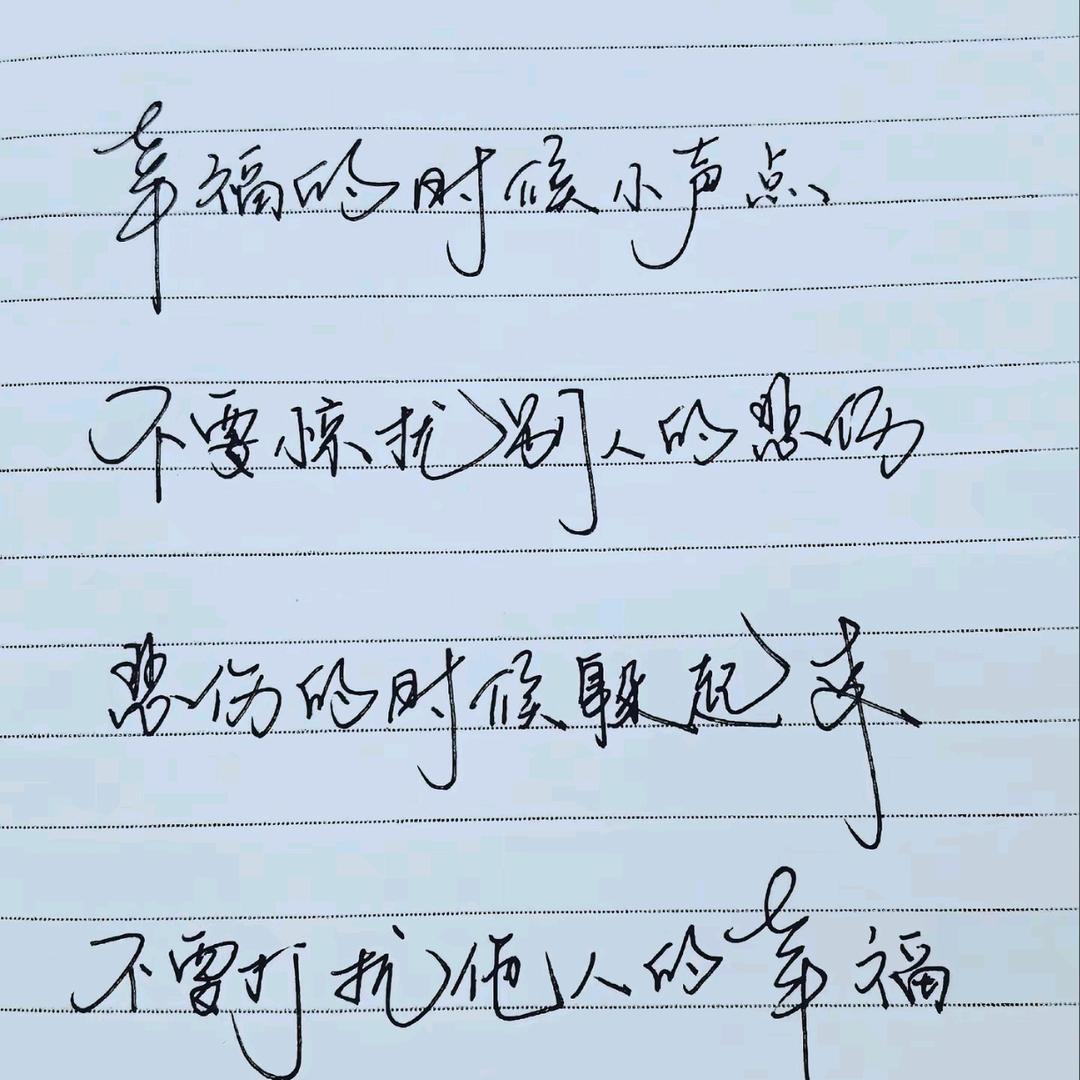 幸福的时候小声点
不要惊扰别人的悲伤
悲伤的时候躲起来
不要打扰他人的幸福